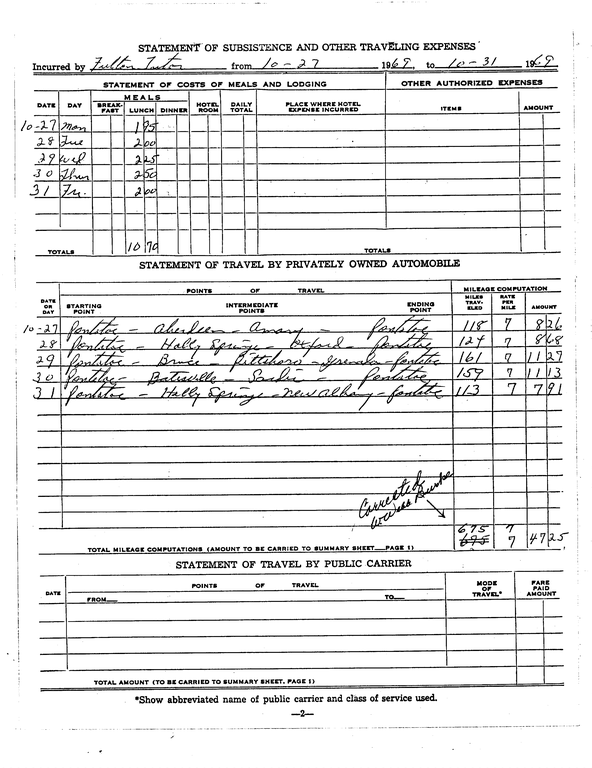 STATEMENT OF SUBSISTENCE AND OTHER TRAVELING EXPENSES
Incurred by Fulton Tutor from 10-27 1969, to 10-31 1969
STATEMENT OF COSTS OF MEALS AND LODGING OTHER AUTHORIZED EXPENSES
MEALS
DATE DAY BREAK-FAST LUNCH DINNER HOTEL ROOM DAILY TOTAL PLACE WHERE HOTEL EXPENSE INCURRED ITEMS AMOUNT
10-27 Mon 1 95
28 Tue 2 00
29 Wed 2 25
30 Thur 2 50
31 Fri. 2 00
TOTALS 10 70 TOTALS
STATEMENT OF TRAVEL BY PRIVATELY OWNED AUTOMOBILE
POINTS OF TRAVEL MILEAGE COMPUTATION
DATE OR DAY STARTING POINT INTERMEDIATE POINTS ENDING POINT MILES TRAV-ELED RATE PER MILE AMOUNT
10-27 Pontotoc - Aberdeen - Amory - Pontotoc 118 7 8 26
28 Pontotoc - Holly Springs - Oxford - Pontotoc 124 7 8 68
29 Pontotoc - Bruce - Pittsboro - Grenada - Pontotoc 161 7 11 27
30 Pontotoc - Batesville - Sardis - Pontotoc 159 7 11 13
31 Pontotoc - Holly Springs - New Albany - Pontotoc 113 7 7 91
Corrected
675 7
TOTAL MILEAGE COMPUTATIONS (AMOUNT TO BE CARRIED TO SUMMARY SHEET PAGE 1) 695 7 47 25
STATEMENT OF TRAVEL BY PUBLIC CARRIER
DATE POINTS OF TRAVEL MODE OF TRAVEL* FARE PAID AMOUNT
FROM TO
TOTAL AMOUNT (TO BE CARRIED TO SUMMARY SHEET, PAGE 1)
*Show abbreviated name of public carrier and class of service used.
—2—